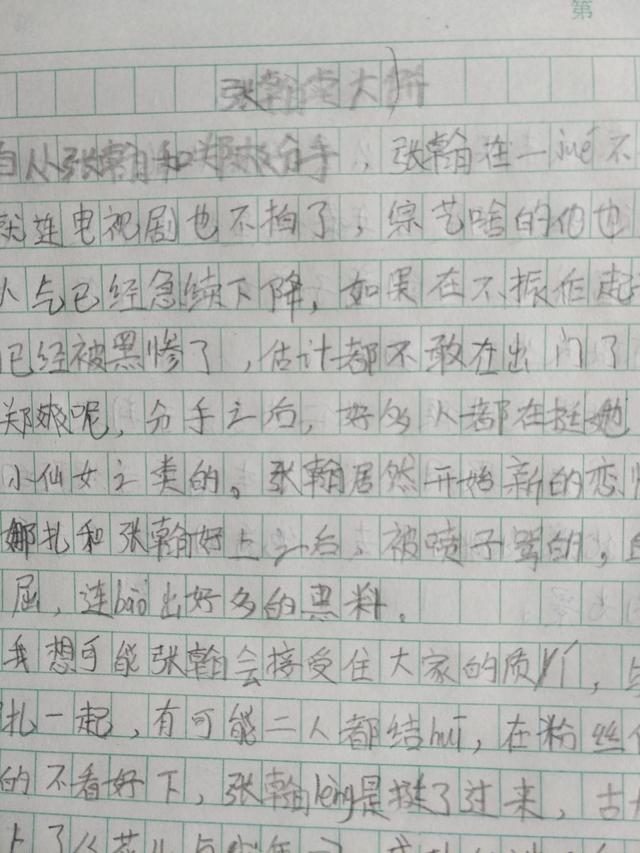 第
张翰卖大饼
自从张翰和郑爽分手，张翰在一jué不
就连电视剧也不拍了，综艺啥的他也
人气已经急续下降，如果在不振作起
已经被黑惨了，估计都不敢在出门了
郑爽呢，分手之后，好多人都在挺她
小仙女之类的。张翰居然开始新的恋
娜扎和张翰好上之后，被喷子骂的，
屈，连bào出好多的黑料。
我想可能张翰会接受住大家的质
扎一起，有可能二人都结hūn，在粉丝
的不看好下，张翰lèng是挺了过来，古